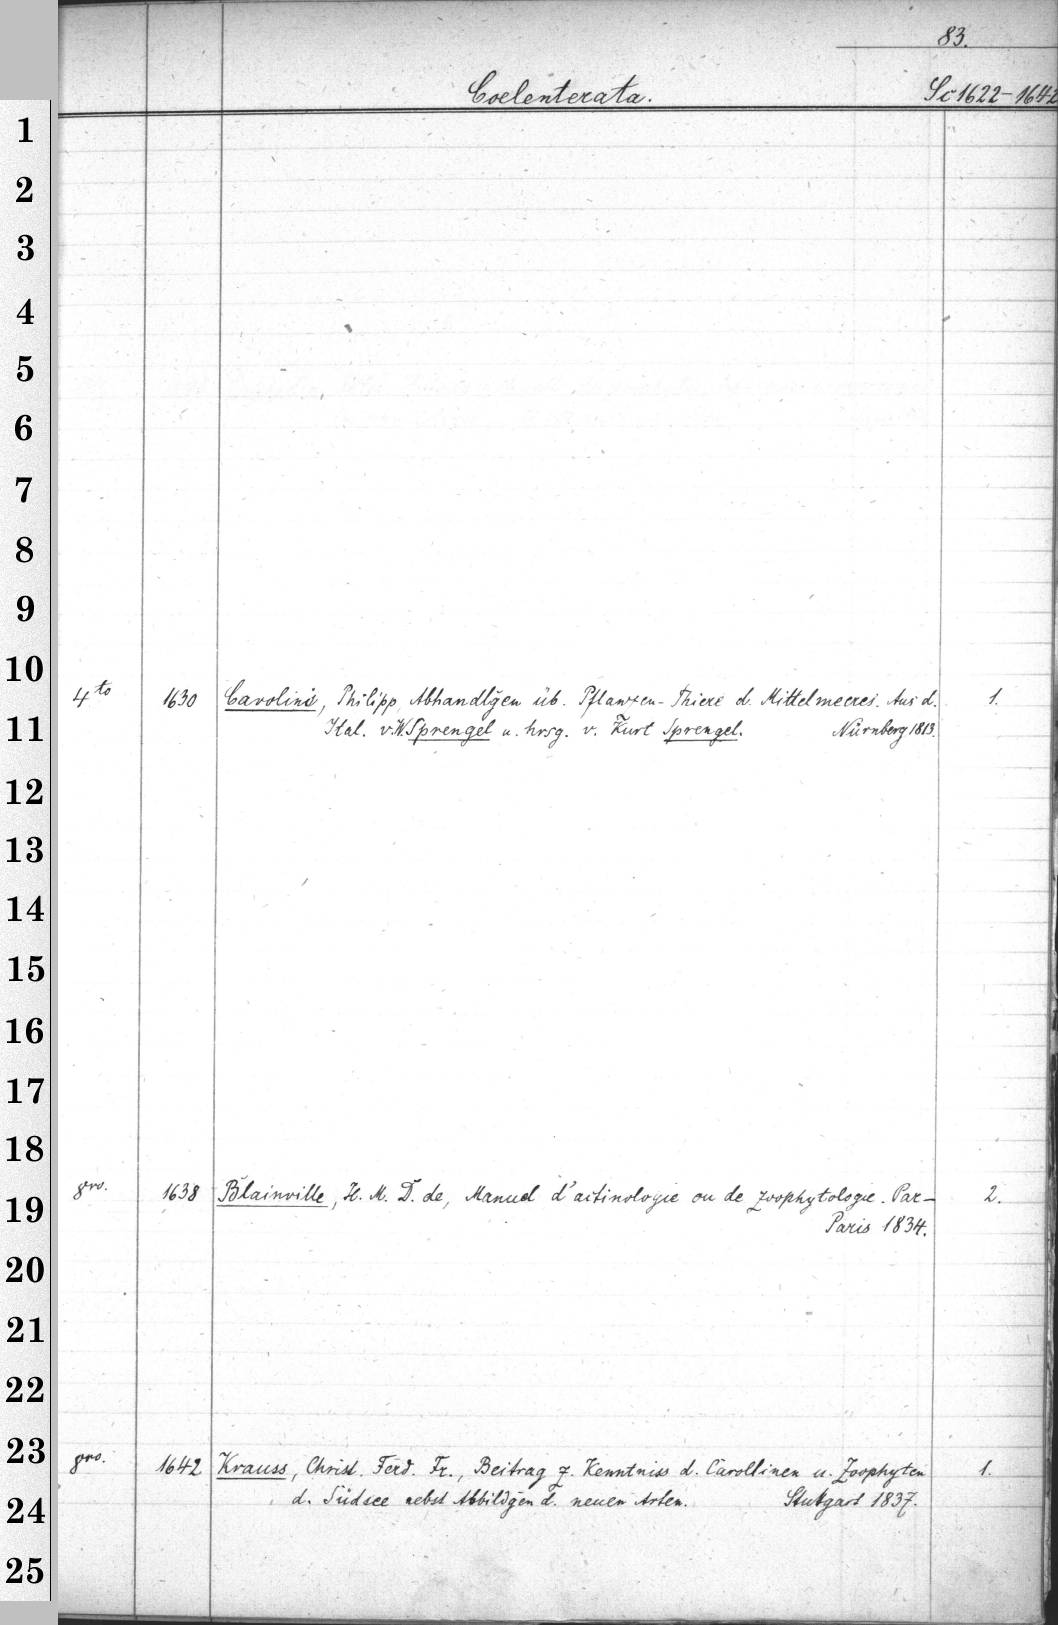 83.
Coelenterata. Sc 1622-1642
1
2
3
4
5
6
7
8
9
10
4to 1630 Cavolini, Philipp, Abhandlgen üb. Pflanzen-Thiere d. Mittelmeeres. Aus d. 1.
11
Ital. v. W. Sprengel u. hrsg. v. Kurt Sprengel. Nürnberg 1813.
12
13
14
15
16
17
18
8vo. 1638 Blainville, H. M. D. de, Manuel d'actinologie ou de zoophytologie. Par- 2.
19
Paris 1834.
20
21
22
23
8vo. 1642 Krauss, Christ. Ferd. Fr., Beitrag z. Kenntniss d. Carollinen u. Zoophyten 1.
24
d. Südsee nebst Abbildgen d. neuen Arten. Stuttgart 1837.
25